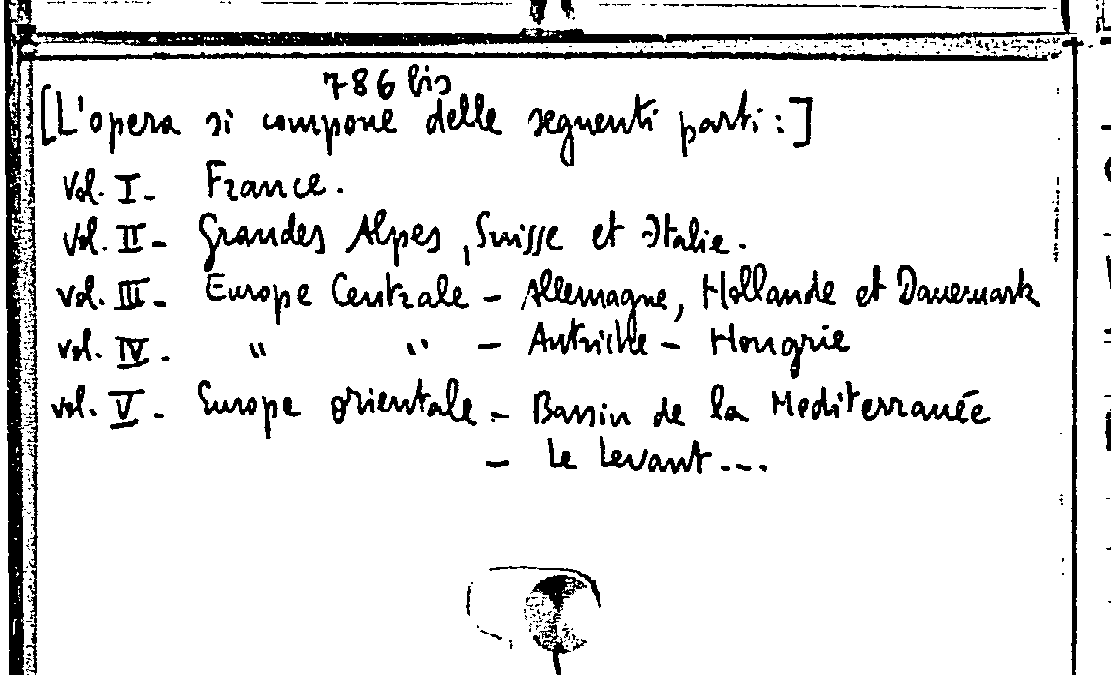 786 bis
[L'opera si compone delle seguenti parti:]
Vol. I - France.
Vol. II - Grandes Alpes, Suisse et Italie.
vol. III - Europe Centrale - Allemagne, Hollande et Danemark
vol. IV - " " - Autriche - Hongrie
vol. V - Europe orientale - Bassin de la Mediterranée
- Le Levant ...